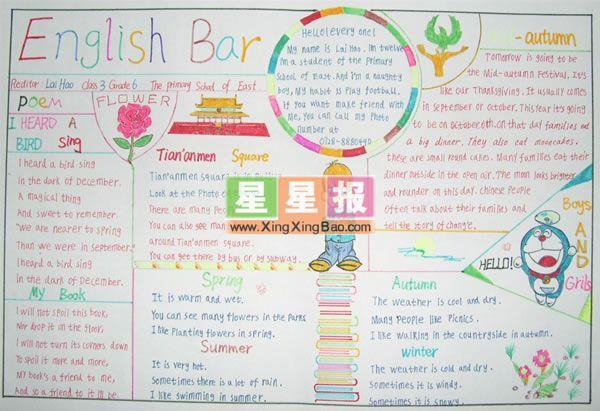 English Bar
Reditor Lai Hao Class 3 Grade 6 The primary School of East
Hello! every one!
My name is Lai Hao. Im twelve
I'm a student of the primary
School of East. And I'm a naughty
boy, My habit is Play football.
If you want make friend with
Me, You can call my Photo
number at
0728-8880490
-autumn
Tomorrow is going to be
the Mid-autumn Festival. It's
like our Thanksgiving. It usually comes
in September or october. This year it's going
to be on October 6th. on that day families eat
a big dinner. They also eat mooncakes.
these are small round cakes. Many families eat their
dinner outside in the open air. The moon looks brighter
and rounder on this day. chinese People
Often talk about their families and
tell the story of change.
Poem
I HEARD A
BIRD Sing
I heard a bird sing
In the dark of December.
A magical thing
And sweet to remember.
"We are nearer to spring
Than we were in september."
I heard a bird sing
In the dark of December.
FLOWER
Tian'anmen Square
Tian'anmen square is in
Look at the Photo of
There are many Peo
You can also see man
around Tian'anmen square.
You can get there by bus or by subway.
星星报
www.XingXingBao.com
HELLO!
Boys
AND
Grils
My Book
I will not spoil this book,
Nor drop it on the floor
I will not turn its corners down
To spoil it more and more,
MY book's a friend to me,
And so a friend to it I'll be.
Spring
It is warm and wet.
You can see many flowers in the Parks
I like Planting flowers in spring.
Summer
It is very hot.
Sometimes there is a lot of rain.
I like swimming in summer.
Autumn
The weather is cool and dry.
Many People like Picnics.
I like walking in the countryside in autumn.
winter
The weather is cold and dry.
Sometimes it is windy.
Sometimes it is snowy.